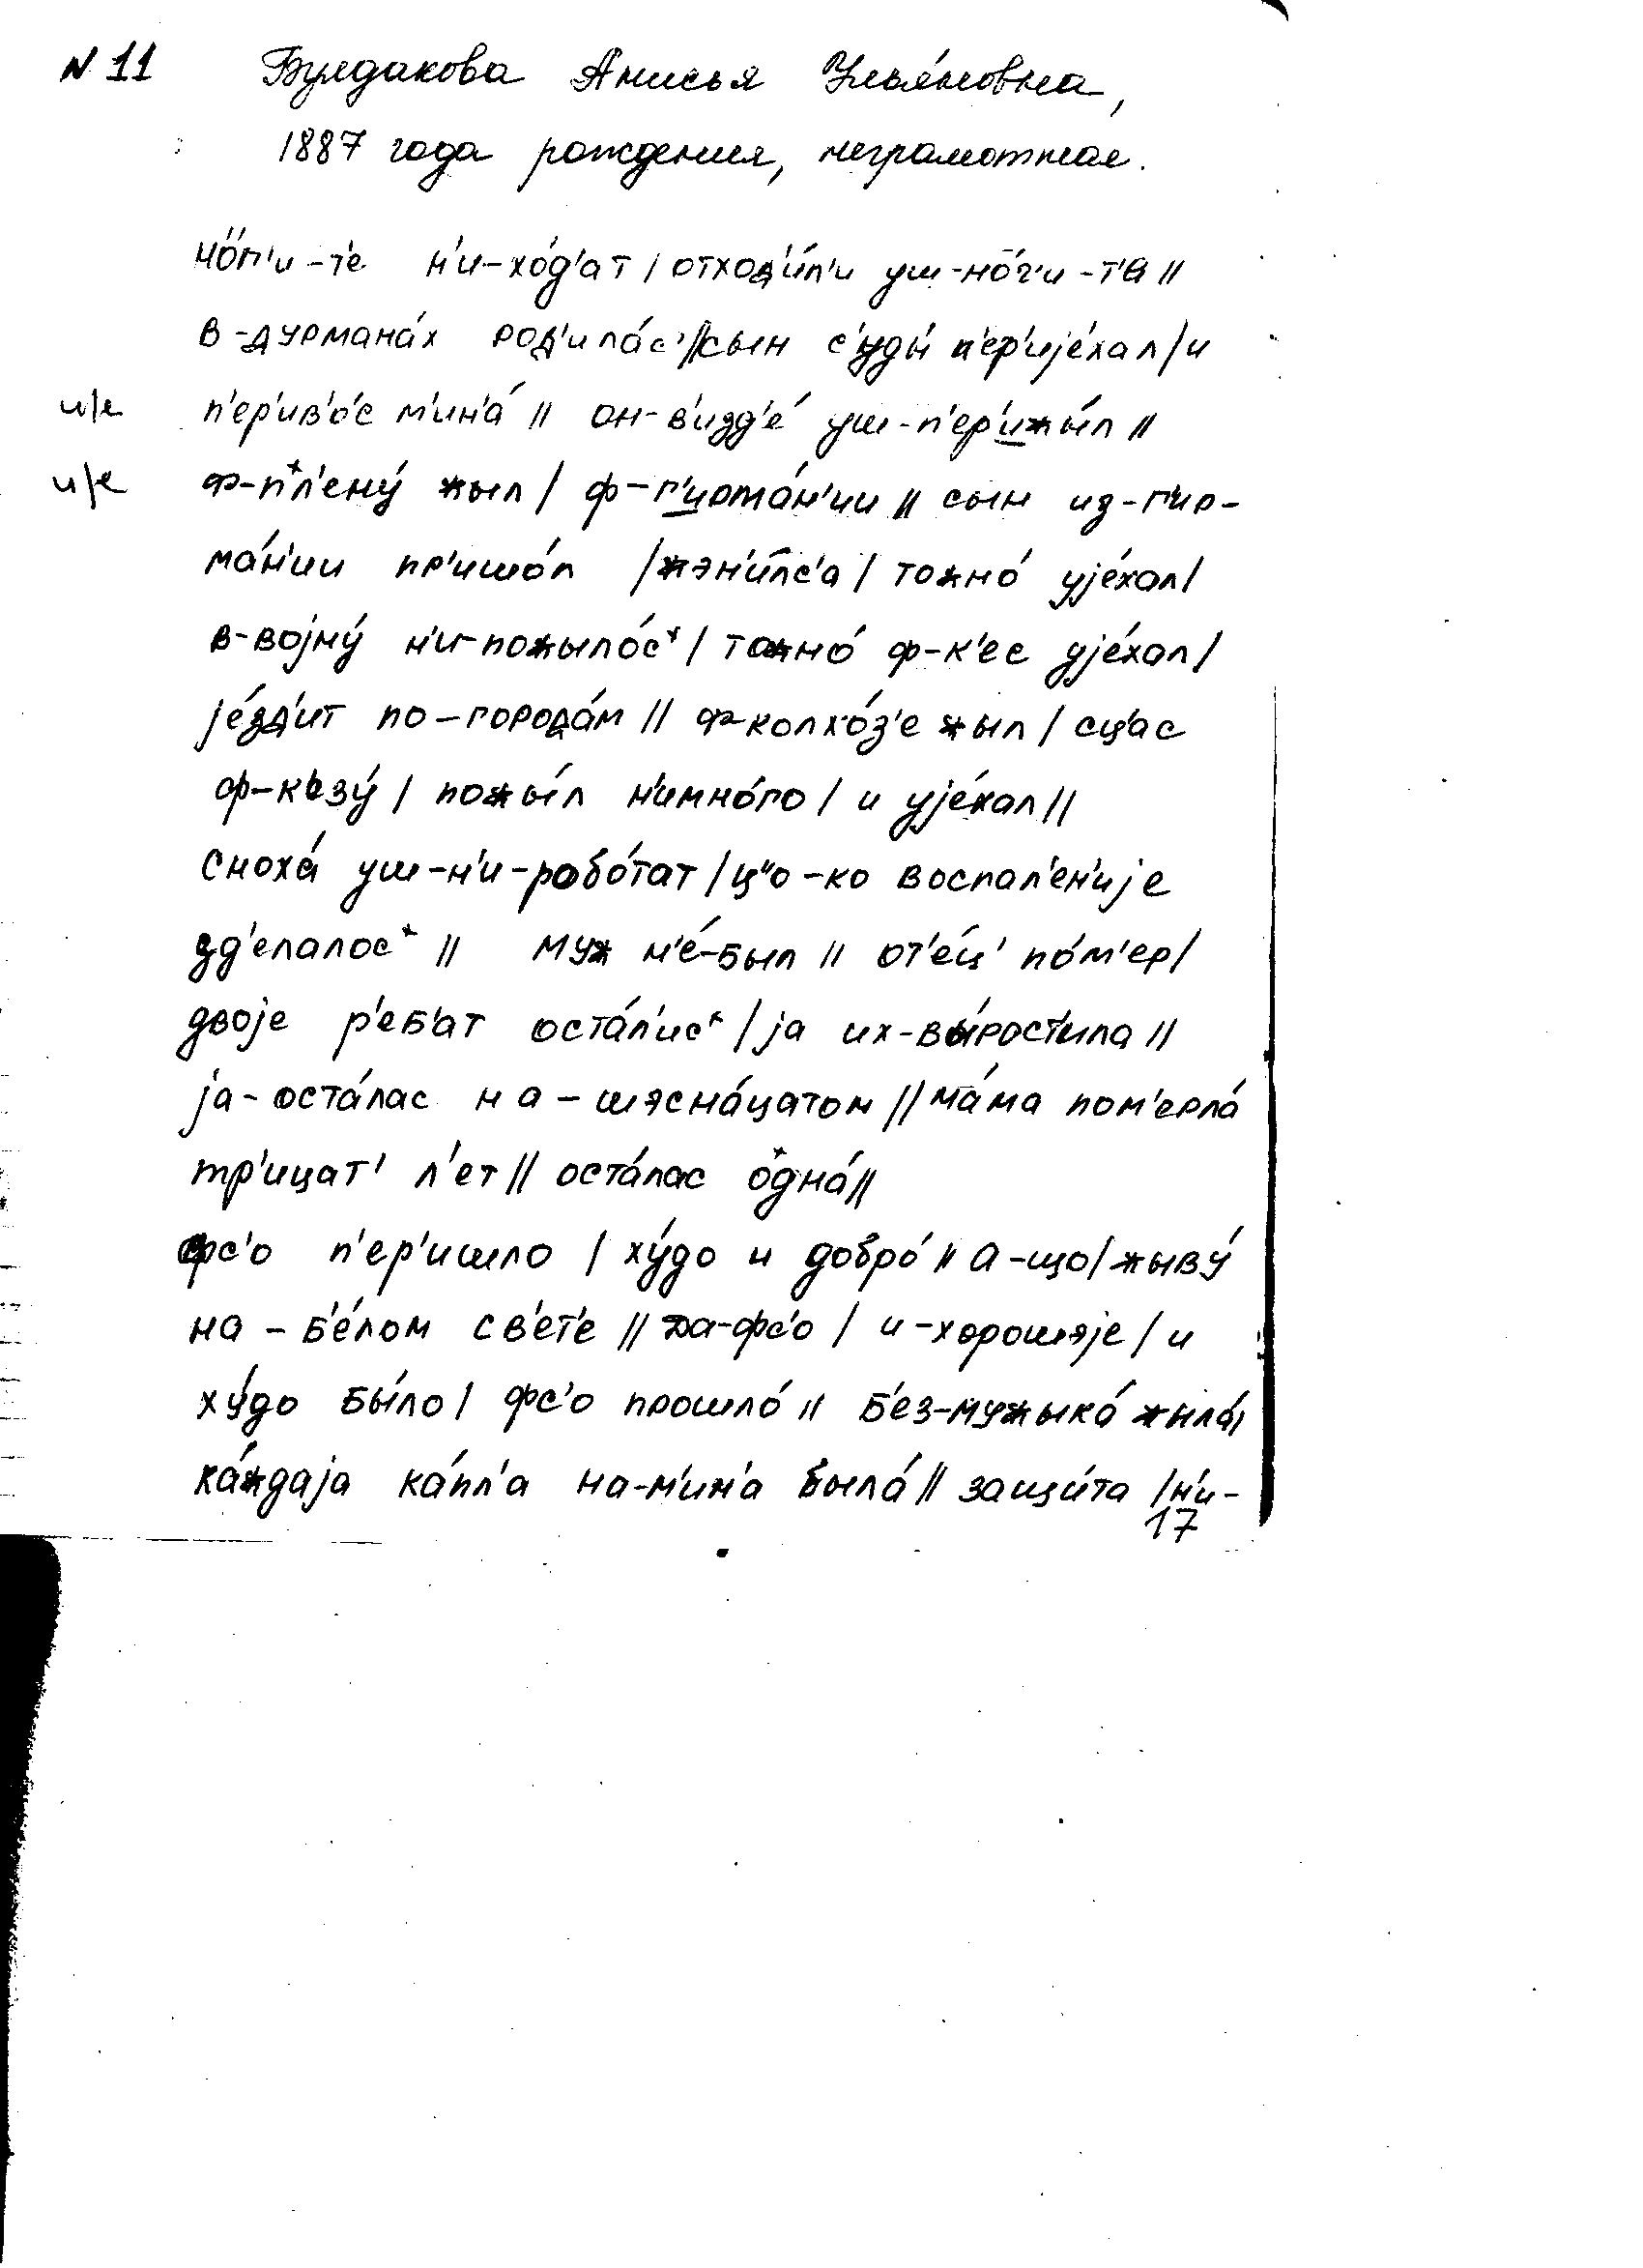 N 11 Булдакова Анисья Улья́новна,
1887 года рождения, неграмотная.
но́г'и-т'е н'и-хо́д'ат / отход'и́л'и уш-но́г'и-т'е //
в-дурмана́х род'ила́с' // сын с'уды́ п'ер'ије́хал / и
и/е п'ер'ив'о́с м'ин'а́ // он-в'изд'е́ уш-п'ер'ижы́л //
и/е ф-пл'ену́ жыл / ф-г'ирма́н'ии // сын из-г'ир-
ма́н'ии пр'ишо́л / жэн'и́лс'а / тожно́ ује́хал /
в-војну́ н'и-пожыло́с+ / тожно́ ф-к'ес ује́хал /
је́зд'ит по-города́м // ф-колхо́з'е жыл / сц'ас
ф-к'езу́ / пожы́л н'имно́го / и ује́хал //
сноха́ уш-н'и-робо́тат / ц"о-ко воспал'ен'ије
зд'елалос+ // муж н'е́-был // от'е́ц' по́м'ер /
двоје р'еб'ат оста́л'ис+ / ја их-вы́рост'ила //
ја-оста́лас на-шэсна́цатом // ма́ма пом'ерла́
тр'ицат' л'ет // оста́лас одна́ //
фс'о п'ер'ишло / ху́до и добро́ // а-що / жыву́
на-б'е́лом св'ет'е // да-фс'о / и-хорошэје / и
ху́до бы́ло / фс'о прошло́ // б'ез-мужыка́ жыла́ /
ка́ждаја ка́пл'а на-м'ин'а была́ // защи́та / н'и-
17